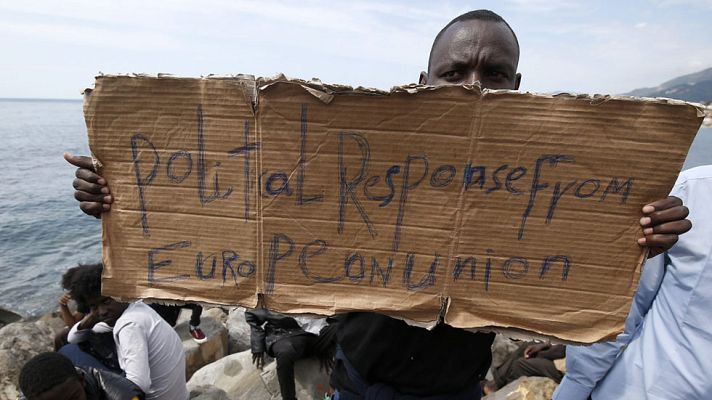 polital Response From
EUROPEAN union